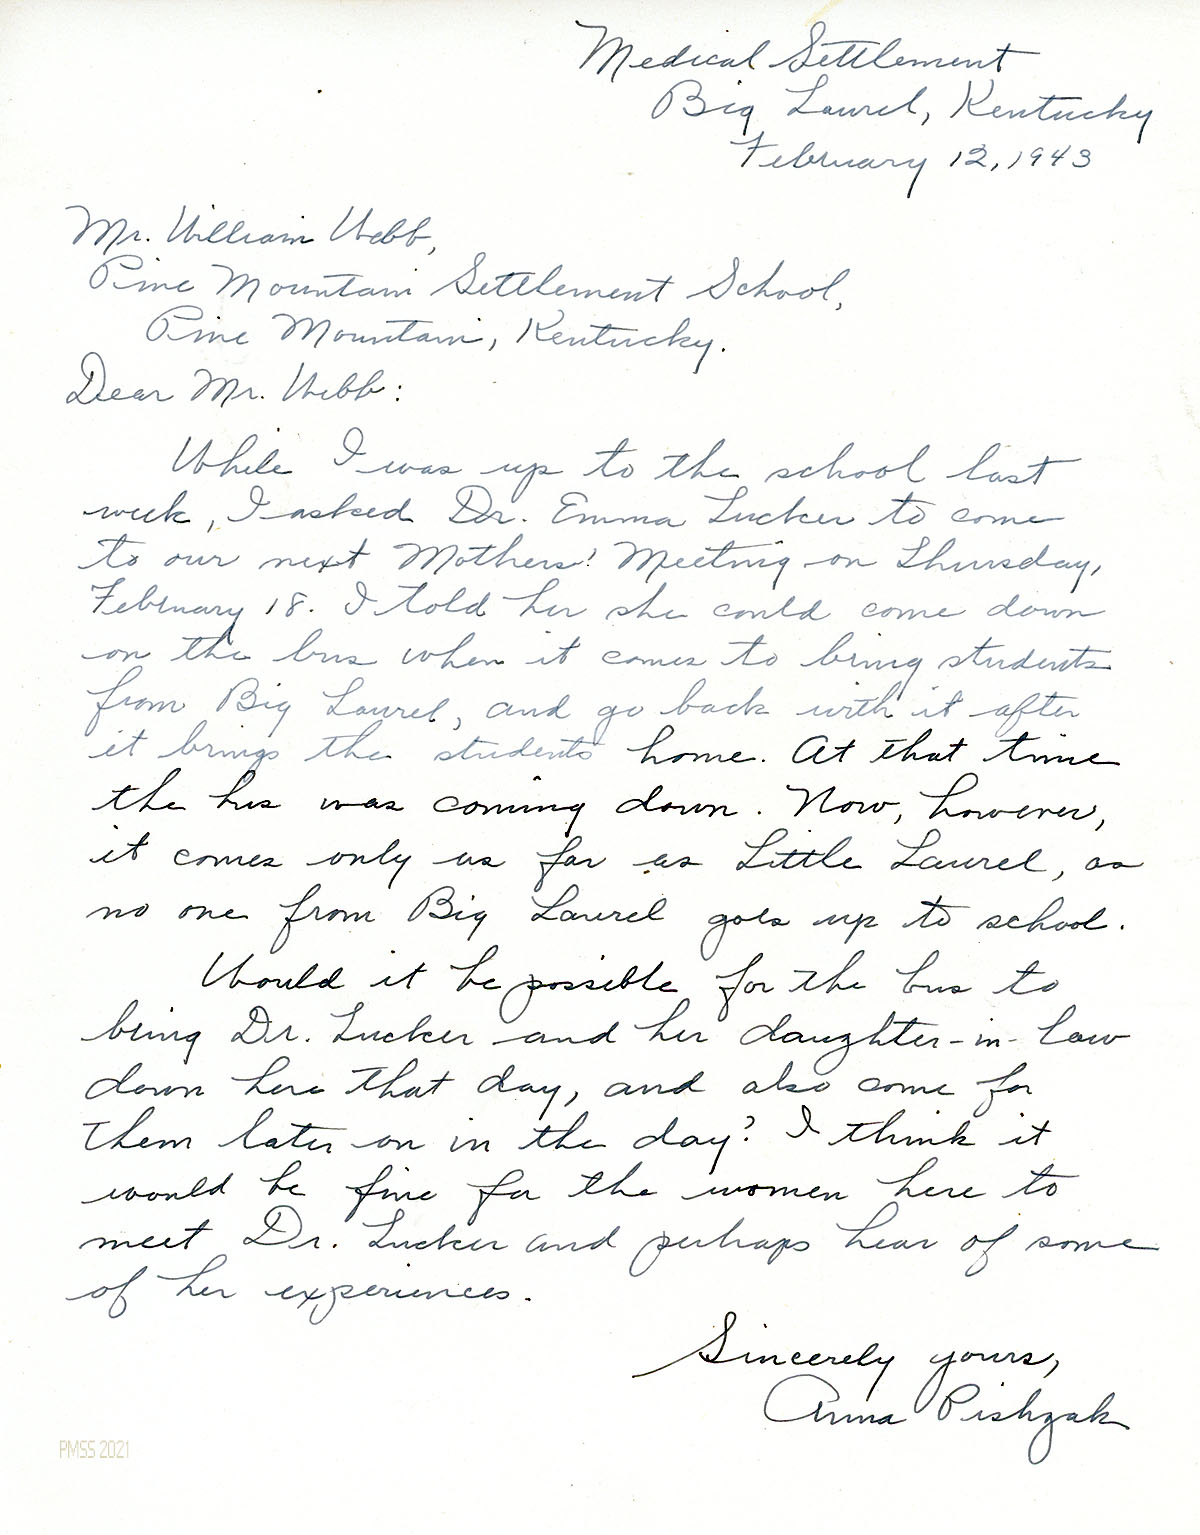 Medical Settlement
Big Laurel, Kentucky
February 12, 1943
Mr. William Webb,
Pine Mountain Settlement School,
Pine Mountain, Kentucky.
Dear Mr. Webb:
While I was up to the school last
week, I asked Dr. Emma Tucker to come
to our next Mothers' Meeting on Thursday,
February 18. I told her she could come down
on the bus when it comes to bring students
from Big Laurel, and go back with it after
it brings the students home. At that time
the bus was coming down. Now, however,
it comes only as far as Little Laurel, as
no one from Big Laurel goes up to school.
Would it be possible for the bus to
bring Dr. Tucker and her daughter-in-law
down here that day, and also come for
them later on in the day? I think it
would be fine for the women here to
meet Dr. Tucker and perhaps hear of some
of her experiences.
Sincerely yours,
Anna Pishzak
PMSS 2021